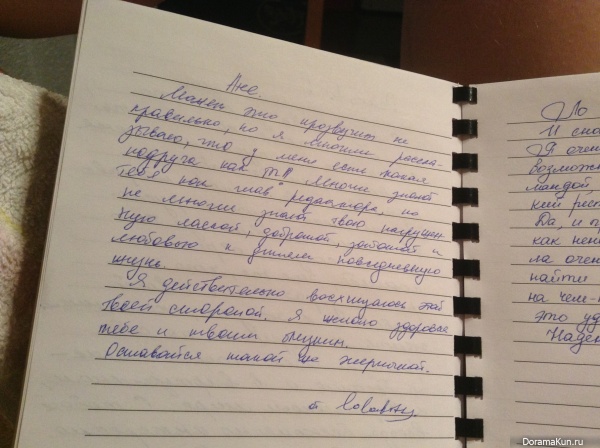 Ане.
Может это прозвучит не
правильно, но я многим расска-
зываю, что у меня есть такая
подруга как ты. Многие знают
тебя как глав редактора, но
не многие знают твою нагружен-
ную лаской, добротой, заботой и
любовью к детям повседневную
жизнь.
Я действительно восхищаюсь этой
твоей стороной. Я желаю здоровья
тебе и твоим близким.
Оставайся такой же энергичной.
от
По
И сно
Я очен
возмож
мандой,
кий рест
Да, и п
как нен
ла очен
найти
на чем-т
это уд
Надею
DoramaKun.ru